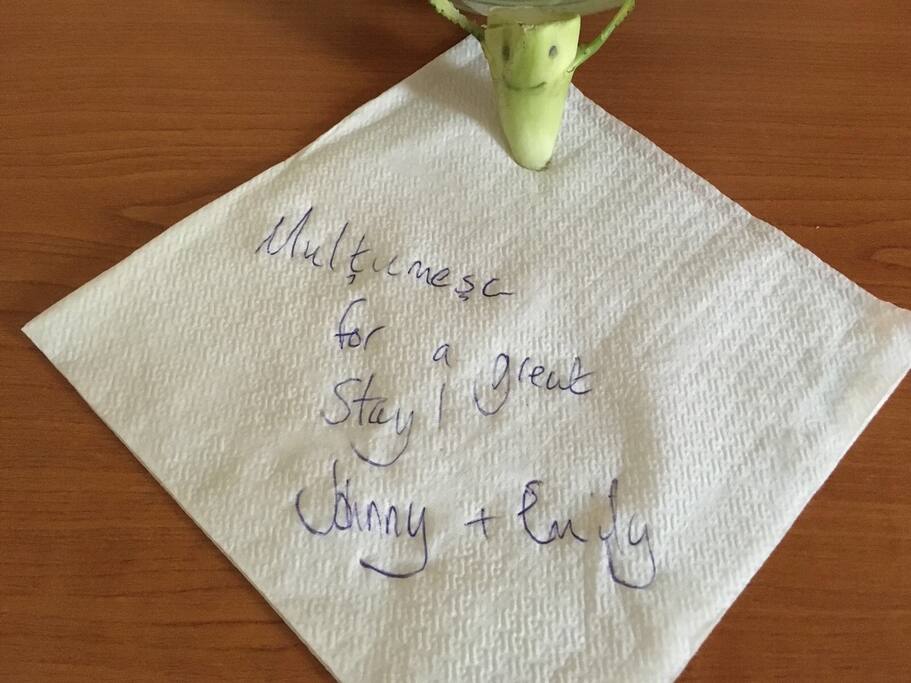 Mulţumesc
for a great
Stay!
Johnny + Emily